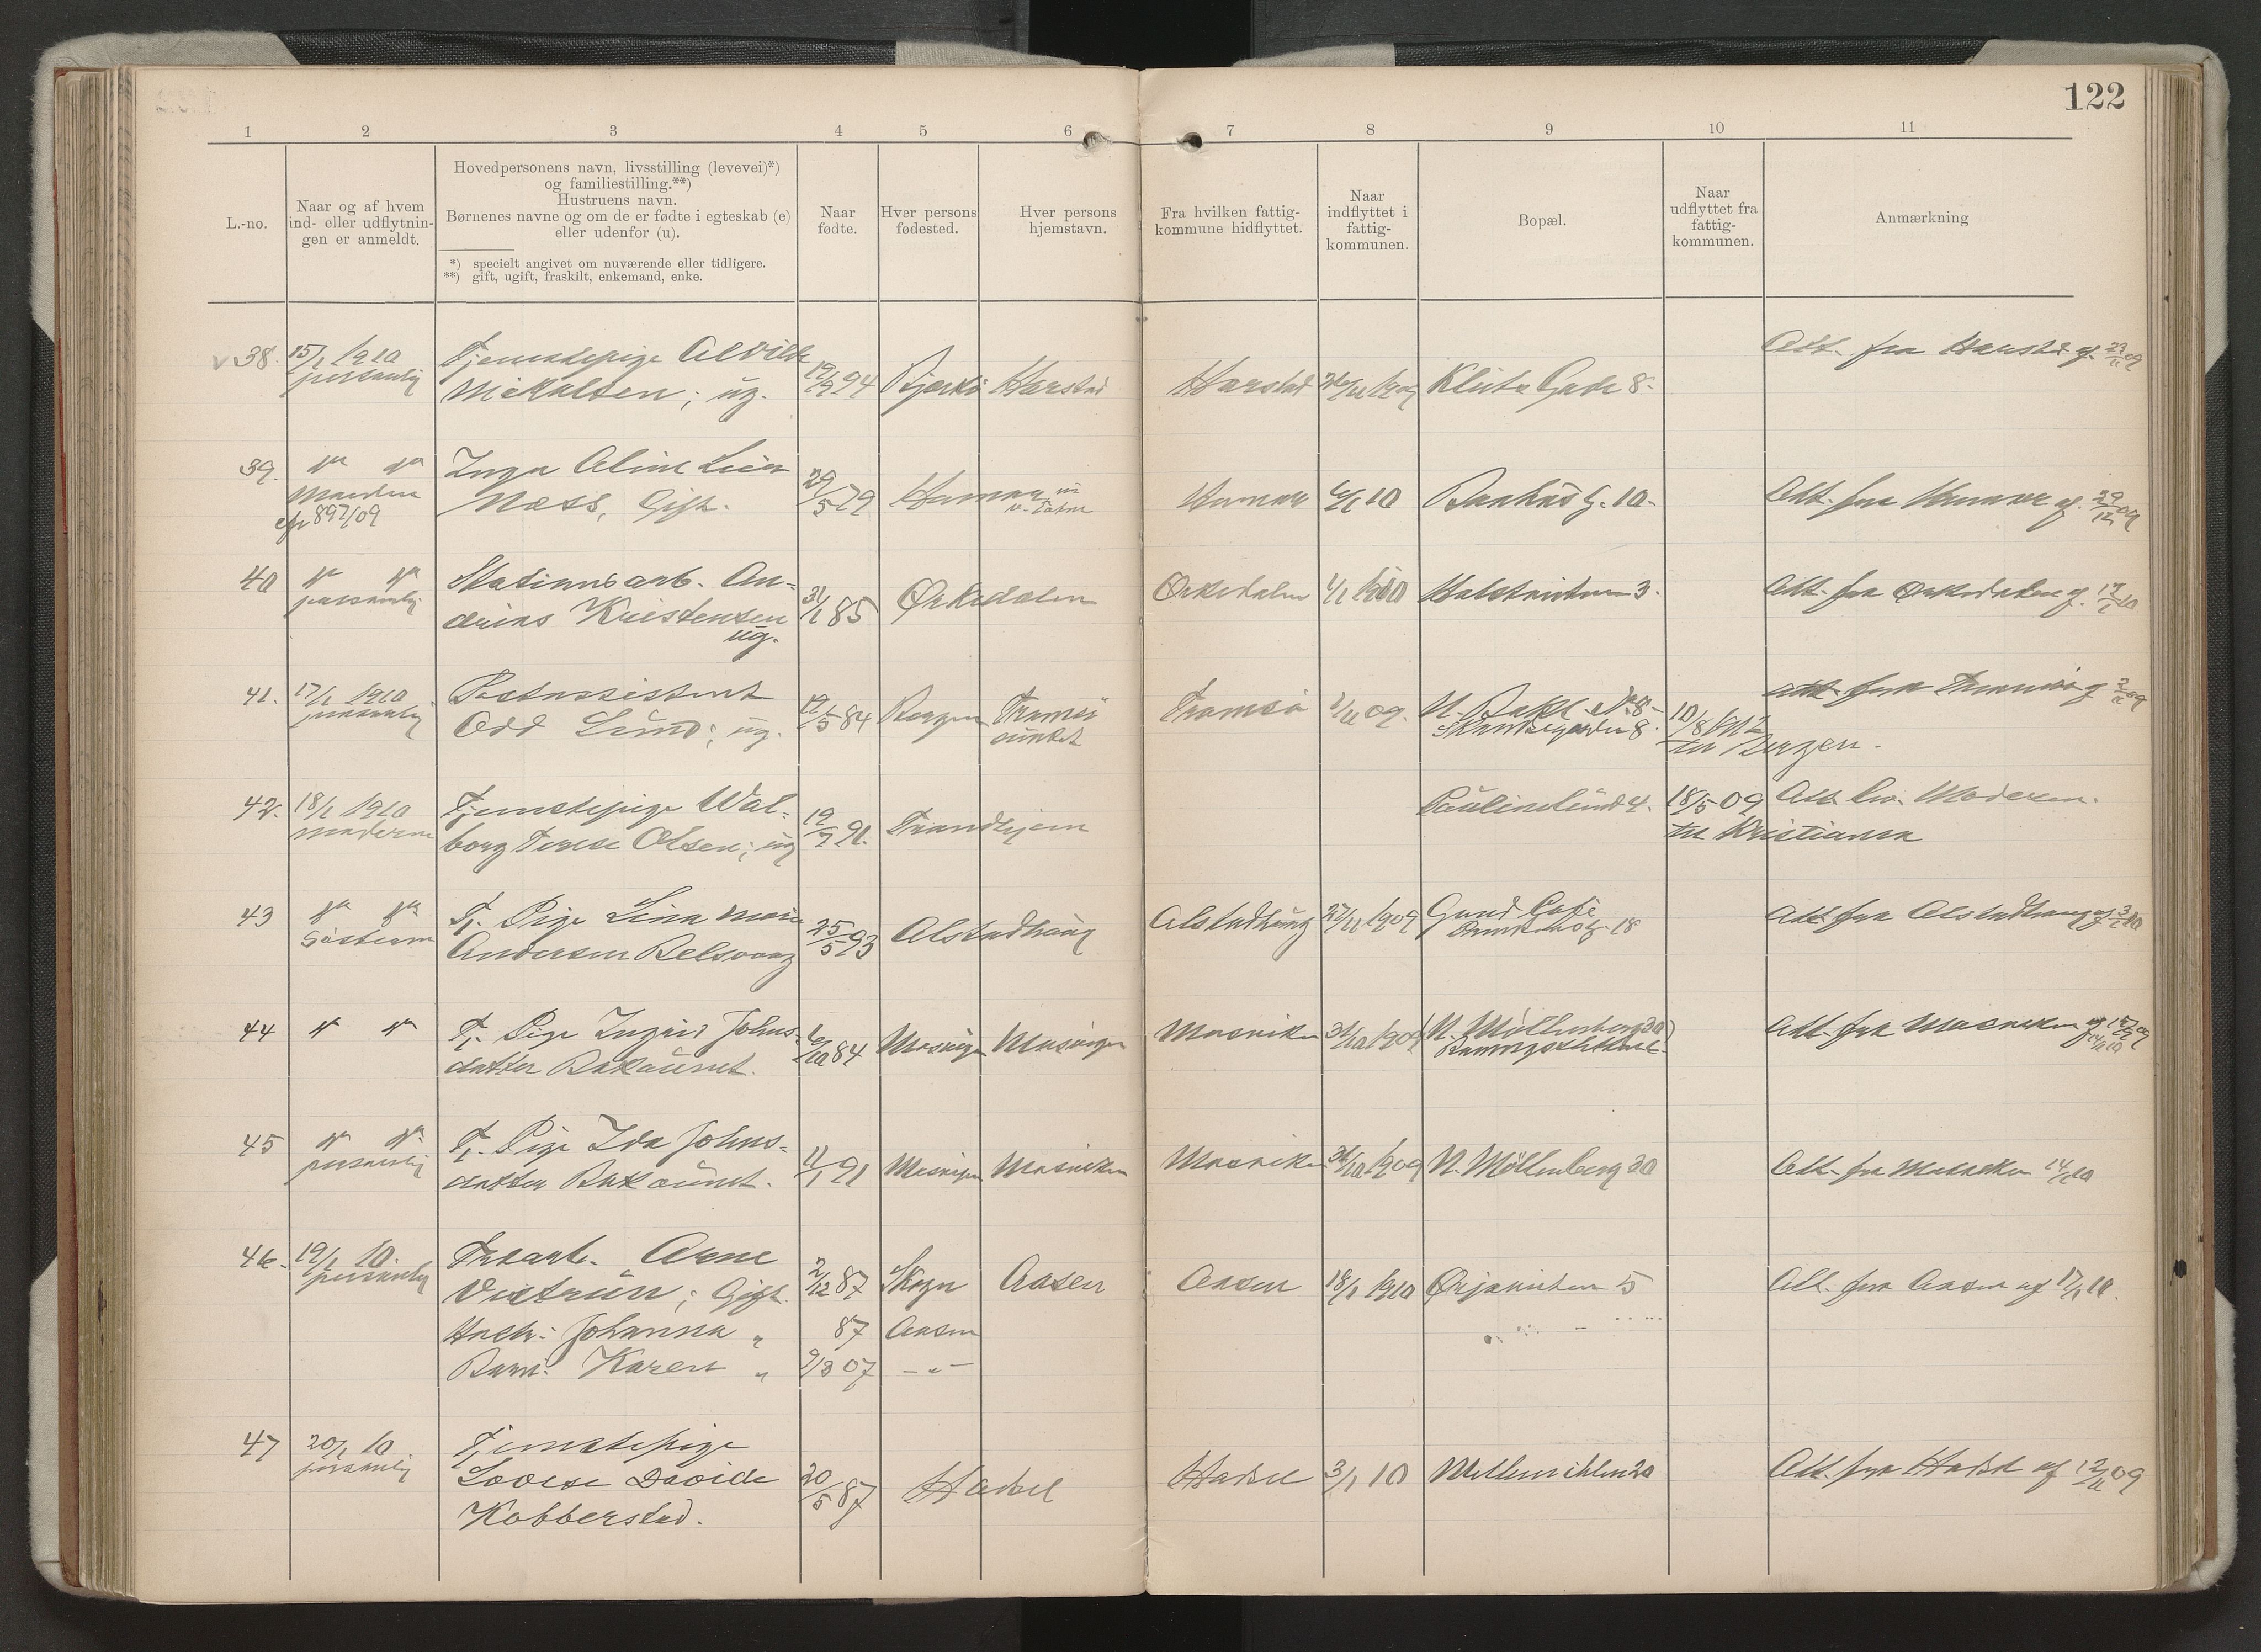 122
1 2 3 4 5 6 7 8 9 10 11
L.-no.
Naar og af hvem
ind- eller udflytnin-
gen er anmeldt.
Hovedpersonens navn, livsstilling (levevei)*)
og familiestilling.**)
Hustruens navn.
Børnenes navne og om de er fødte i egteskab (e)
eller udenfor (u).
*) specielt angivet om nuværende eller tidligere.
**) gift, ugift, fraskilt, enkemand, enke.
Naar
fødte.
Hver persons
fødested.
Hver persons
hjemstavn.
Fra hvilken fattig-
kommune hidflyttet.
Naar
indflyttet i
fattig-
kommunen.
Bopæl.
Naar
udflyttet fra
fattig-
kommunen.
Anmærkning
38. 15/1 1910
personlig
Tjenestepige Alvilde
Mikalsen; ug.
94 Bjarkö Harstad
Harstad 1909 Gade 8.
Att. fra Harstad af 09
39.
Manden
cfr 897/09
Inga Aline Lier
Næss, Gift.
29/5 79 Hamar
Hamar 10 Bakkeg. 10.
Att. fra Hamar af 29/12 09
40
personlig
Stationsarb. An-
drias Kristensen
ug.
31/1 85 Orkedalen
Orkedalen 1/1 1910 3.
Att. fra Orkedalen af 10
41. 17/1 1910
personlig
Postassistent
Odd Lund; ug.
84 Bergen Tromsö
Tromsö 09. N. Bakl. 8.
8.
10/8
til Bergen.
Att. fra Tromsö af 09
42. 18/1 1910
moderen
Tjenestepige Wal-
borg Terese Olsen; ug
19/7 91. Trondhjem
Paulinelund 4.
18/5 09
til Kristiania
Moderen.
43
Søsteren
Tj. Pige Lina Marie
Andersen Belsvaag
25/5 93 Alstadhaug
Alstadhaug 27/11 1909 Grand Café
18
Att. fra Alstadhaug af 10
44
Tj. Pige Ingrid Johns-
datter Bakaunet.
84 Mosviken Mosviken
Mosviken 1909 N. Möllenberg 30
Att. fra Mosviken af
45
personlig
Tj. Pige Ida Johns-
datter Bakaunet.
11/1 91 Mosviken Mosviken
Mosviken 1909 N. Möllenberg 30
Att. fra Mosviken 14/1 10
46. 19/1 10.
personlig
Arne
Vistrün; Gift.
2/12 87 Skogn Aasen
Aasen 18/1 1910 Ørjaveiten 5
Att. fra Aasen af 17/1 10.
Hustr: Johanna „ 87 Aasen
Barn: Karen „ 9/3 07 –„–
47 20/1 10
personlig
Tjenestepige
Lovise Davide
Kobberstad.
20/5 87 Hadsel
Hadsel 3/1 10 Mellemilen 20
Att. fra Hadsel af 12/11 09